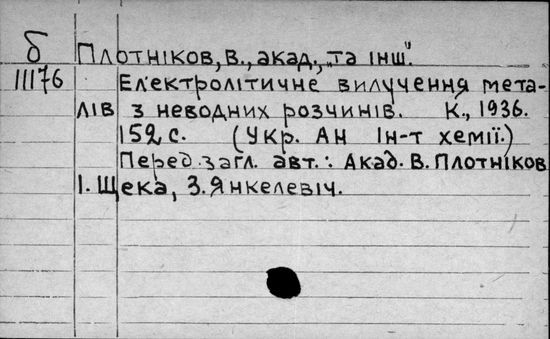 б Плотніков, В., акад., „та інш".
11176 Електролітичне вилучення мета-
лів з неводних розчинів. К., 1936.
152 с. (Укр. Ан Ін-т хемії.)
Перед. загл. авт.: Акад. В. Плотніков
І. Щека, З. Янкелевіч.